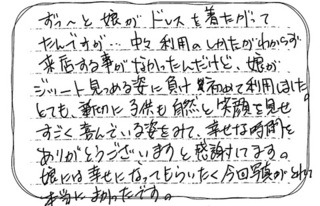 ずっ〜と娘がドレスを着たがって
たんですが…中々利用のしかたがわからず
来店する事がなかったんだけど、娘が
ジィート見つめる姿に負け初めて利用しました。
とても、親切に子供も自然と笑顔を見せ
すごく喜んでいる姿をみて、幸せな時間を
ありがとうございますと感謝してます。
娘には幸せになってもらいたく今回写真がとれて
本当によかったです。